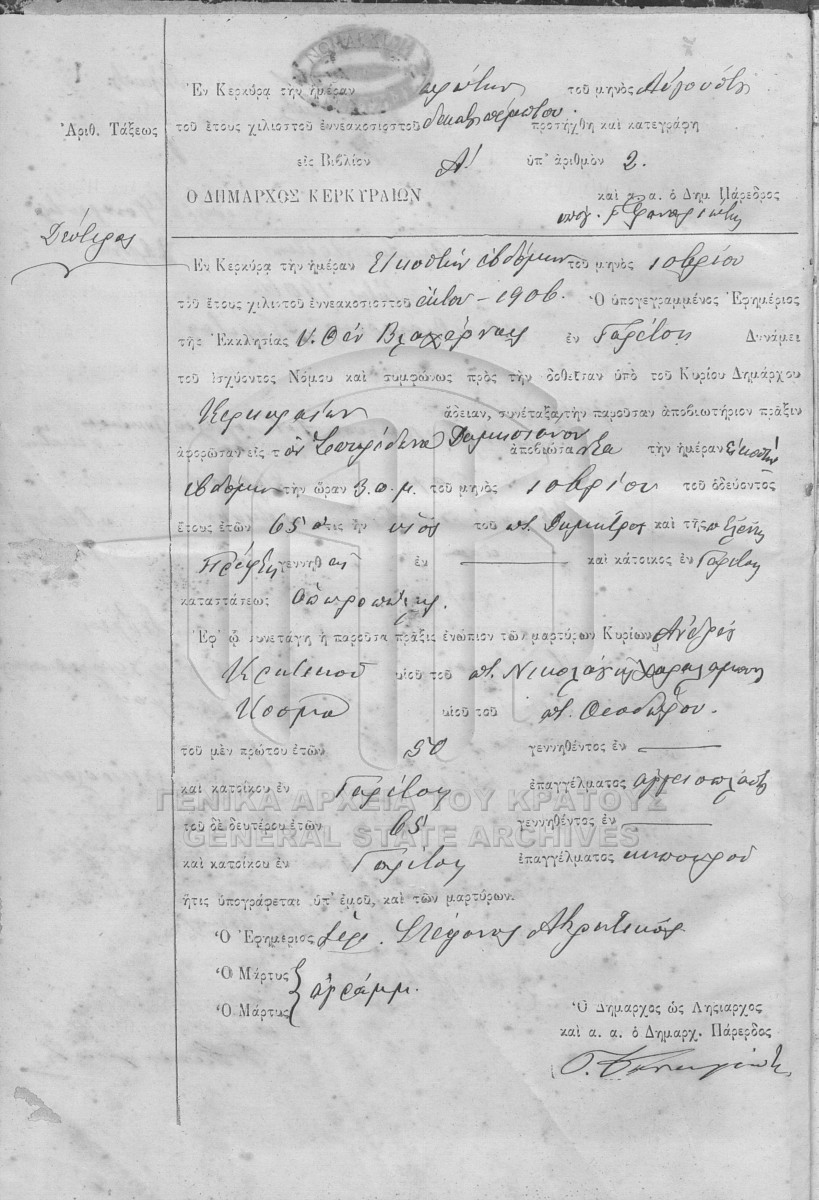 Ἐν Κερκύρᾳ τὴν ἡμέραν πρώτην τοῦ μηνὸς Αὐγούστου
Ἀριθ. Τάξεως
τοῦ ἔτους χιλιοστοῦ ἐννεακοσιοστοῦ δεκάτου πέμπτου προσήχθη καὶ κατεγράφη
εἰς Βιβλίον Α' ὑπ' ἀριθμὸν 2.
Ὁ ΔΗΜΑΡΧΟΣ ΚΕΡΚΥΡΑΙΩΝ καὶ α. α. ὁ Δημ Πάρεδρος
ὑπογ. Γ
Δεύτερος
Ἐν Κερκύρᾳ τὴν ἡμέραν Εἰκοστὴν ἑβδόμην τοῦ μηνὸς 10βρίου
τοῦ ἔτους χιλιοστοῦ ἐννεακοσιοστοῦ ἕκτου - 1906. Ὁ ὑπογεγραμμένος Ἐφημέριος
τῆς Ἐκκλησίας Υ. Θεν Βλαχέρνας ἐν Γαρίτσῃ Δυνάμει
τοῦ Ἰσχύοντος Νόμου καὶ συμφώνως πρὸς τὴν δοθεῖσαν ὑπὸ τοῦ Κυρίου Δημάρχου
Κερκυραίων ἄδειαν, συνέταξα τὴν παροῦσαν ἀποβιωτήριον πρᾶξιν
ἀφορῶσαν εἰς τὸν Σπυρίδωνα Δαμασιανὸν ἀποβιώσαντα τὴν ἡμέραν Εἰκοστὴν
ἑβδόμην τὴν ὥραν 3. π. μ. τοῦ μηνὸς 10βρίου τοῦ ὁδεύοντος
ἔτους ἐτῶν 65 ὅστις ἦν υἱὸς τοῦ π. Δημήτρου καὶ τῆς π Ἑλένης
γεννηθεὶς ἐν — καὶ κάτοικος ἐν Γαρίτσῃ
καταστάσεως Ὀπωροπώλης.
Ἐφ' ᾧ συνετάγη ἡ παροῦσα πρᾶξις ἐνώπιον τῶν μαρτύρων Κυρίων Ἀνδρέου
Κρητικοῦ υἱοῦ τοῦ π. Νικολάου καὶ Χαραλάμπου
Κοσμᾶ υἱοῦ τοῦ π. Θεοδώρου.
τοῦ μὲν πρώτου ἐτῶν 50 γεννηθέντος ἐν —
καὶ κατοίκου ἐν Γαρίτσῃ ἐπαγγέλματος ἀγγειοπλάστου
ΓΕΝΙΚΑ ΑΡΧΕΙΑ ΤΟΥ ΚΡΑΤΟΥΣ
τοῦ δὲ δευτέρου ἐτῶν 65 γεννηθέντος ἐν —
GENERAL STATE ARCHIVES
καὶ κατοίκου ἐν Γαρίτσῃ ἐπαγγέλματος κηπουροῦ
ἥτις ὑπογράφεται ὑπ' ἐμοῦ, καὶ τῶν μαρτύρων.
Ὁ Ἐφημέριος Ἱερ. Στέφανος Ἀκρητικός
Ὁ Μάρτυς
ἀγράμμ.
Ὁ Μάρτυς
Ὁ Δήμαρχος ὡς Ληξίαρχος
καὶ α. α. ὁ Δημαρχ. Πάρεδρος